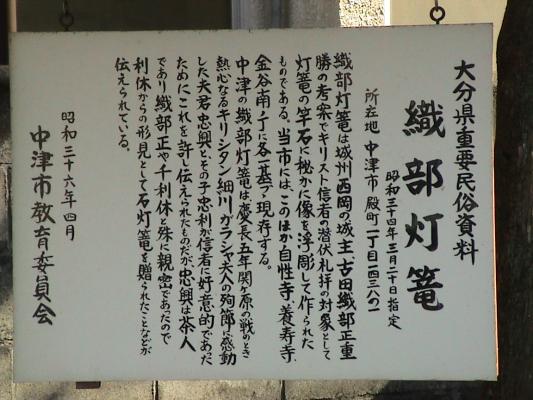 大分県重要民俗資料
織部灯篭
昭和三十四年三月二十日指定
所在地 中津市殿町一丁目一四三八の一
織部灯篭は城州西岡の城主、古田織部正重
勝の考案でキリスト信者の潜伏礼拝の対象として
灯篭の竿石に秘かに像を浮彫して作られた
ものである。当市には、このほか自性寺、養寿寺、
金谷南ノ丁に各一基が現存する。
中津の織部灯篭は、慶長五年関ヶ原の戦のとき
熱心なるキリシタン細川ガラシャ夫人の殉節に感動
した夫君忠興とその子忠利が信者に好意的であった
ためにこれを許し伝えられたものだが、忠興は茶人
であり織部正や千利休と殊に親密であったので
利休からの形見として石灯篭を贈られたことなどが
伝えられている。
昭和三十六年四月
中津市教育委員会